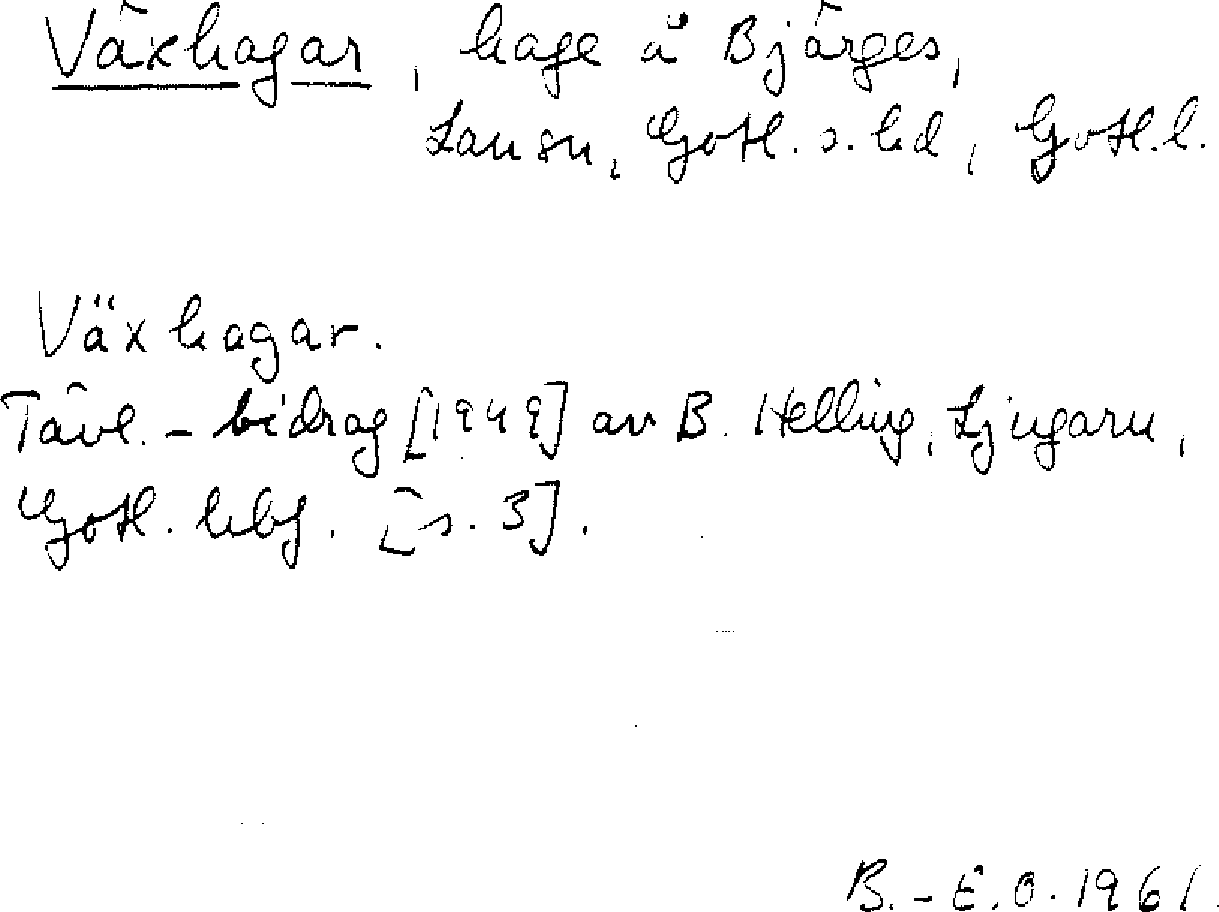 Växhagar, hage å Bjärges,
Lau sn, Gotl. s. hd, Gotl. l.
Växhagar.
Tävl.-bidrag [1949] av B. Helling, Ljugarn,
Gotl. hbf. [s. 3].
B.-E.O. 1961.